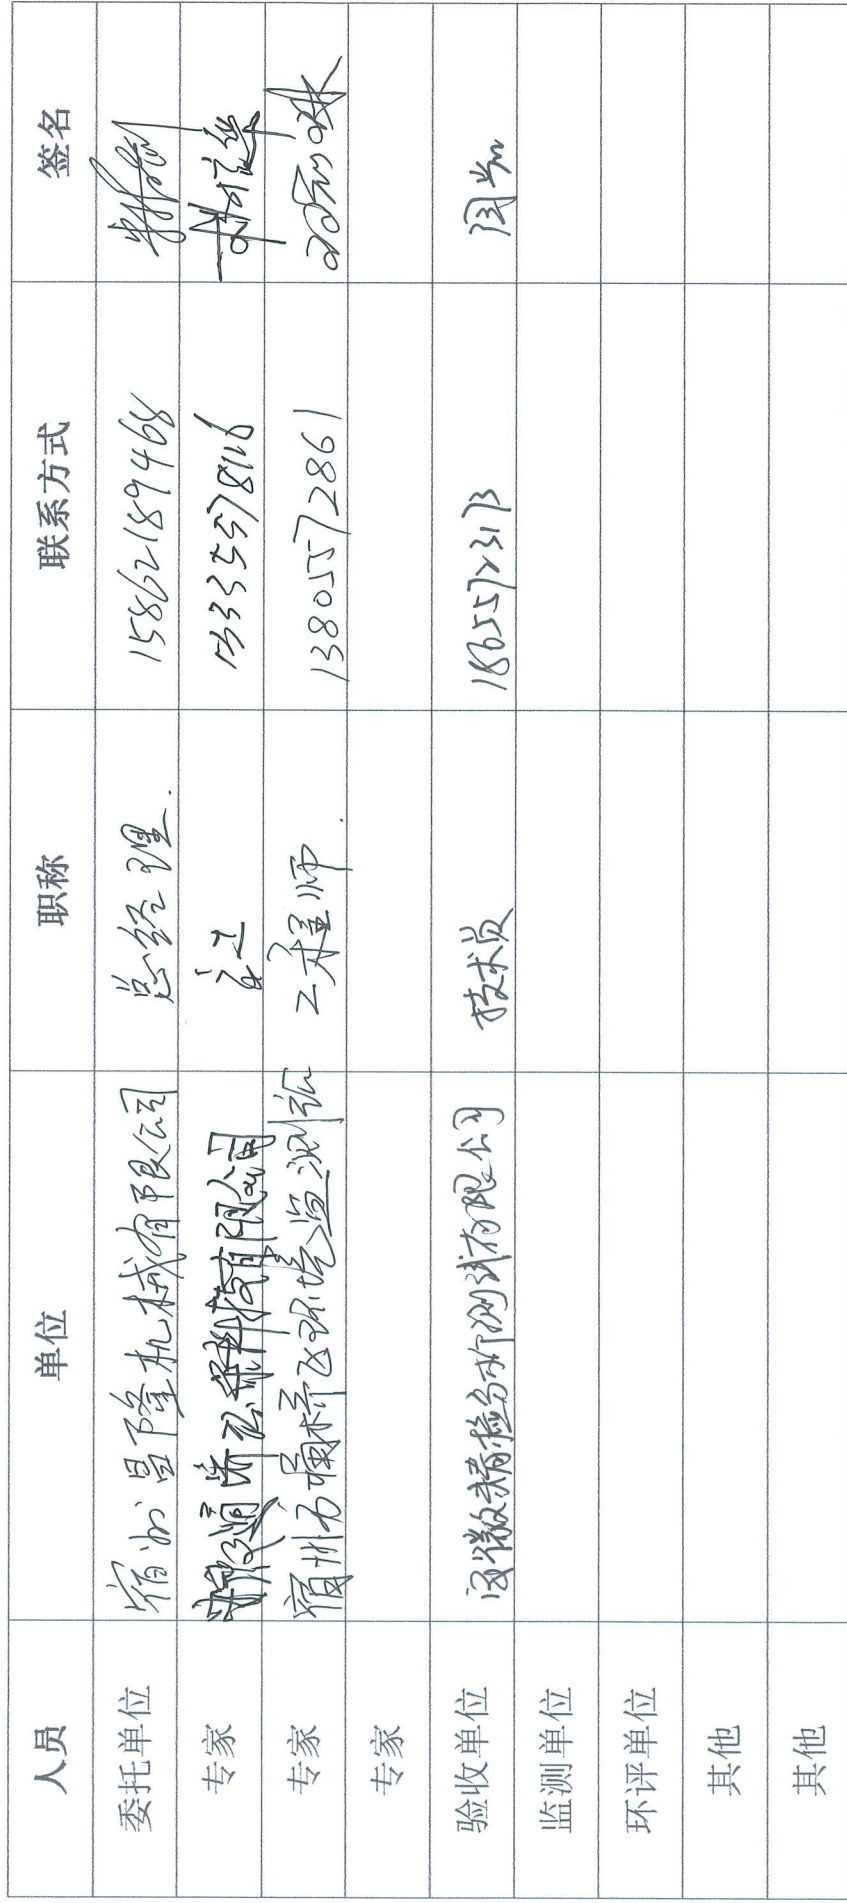 人员 单位 职称 联系方式 签名
委托单位 宿州昌隆机械有限公司 总经理. 15862189468
专家 环保科技有限公司 高工 13335578116
专家 宿州市埇桥区环境监测站 工程师. 13805572861
专家
验收单位 检分析测试有限公司 技术员 18655723173
监测单位
环评单位
其他
其他